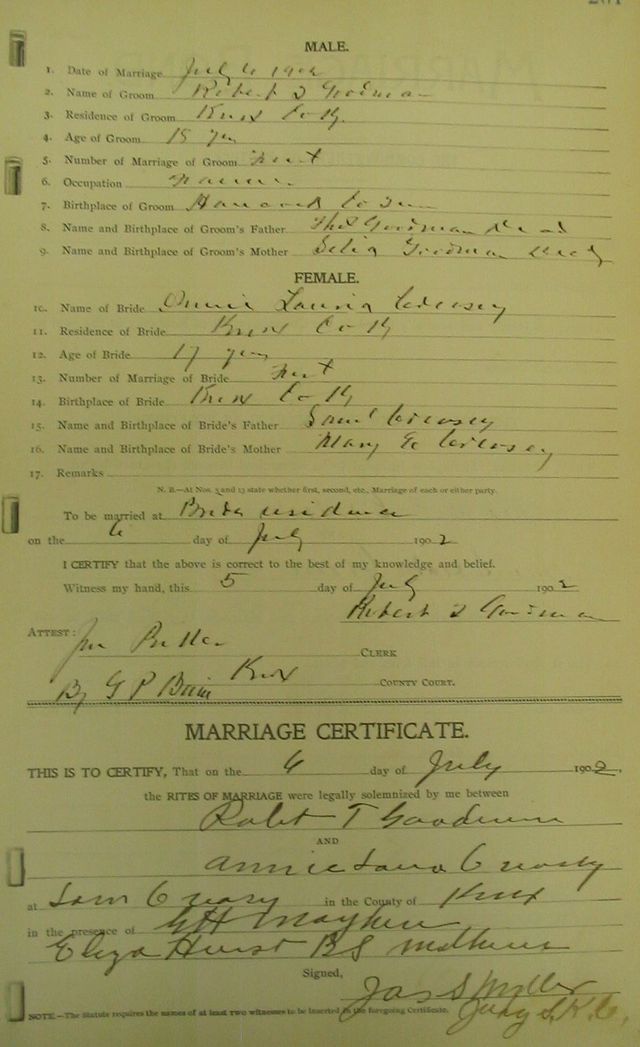 MALE.
1. Date of Marriage July 6 1902
2. Name of Groom Robert T Goodman
3. Residence of Groom Knox Co Ky.
4. Age of Groom
5. Number of Marriage of Groom First
6. Occupation Farmer
7. Birthplace of Groom Hancock Co
8. Name and Birthplace of Groom's Father Thos Goodman Dead
9. Name and Birthplace of Groom's Mother Goodman Dead
FEMALE.
10. Name of Bride Annie Laura
11. Residence of Bride Knox Co Ky
12. Age of Bride 17 years
13. Number of Marriage of Bride First
14. Birthplace of Bride Knox Co Ky
15. Name and Birthplace of Bride's Father Saml
16. Name and Birthplace of Bride's Mother Mary E
17. Remarks
N. B.—At Nos. 5 and 13 state whether first, second, etc., Marriage of each or either party.
To be married at Brides residence
on the 6 day of July 1902
I CERTIFY that the above is correct to the best of my knowledge and belief.
Witness my hand, this 5 day of July 1902
Robert T Goodman
ATTEST:
CLERK
By G P Knox COUNTY COURT.
MARRIAGE CERTIFICATE.
THIS IS TO CERTIFY, That on the 6 day of July 1902.
the RITES OF MARRIAGE were legally solemnized by me between
Robt T Goodman
AND
Annie Laura
at Sam in the County of Knox
in the presence of G H
Eliza Hurst B S
Signed,
Jas S Miller
NOTE.—The Statute requires the names of at least two witnesses to be inserted in the foregoing Certificate.